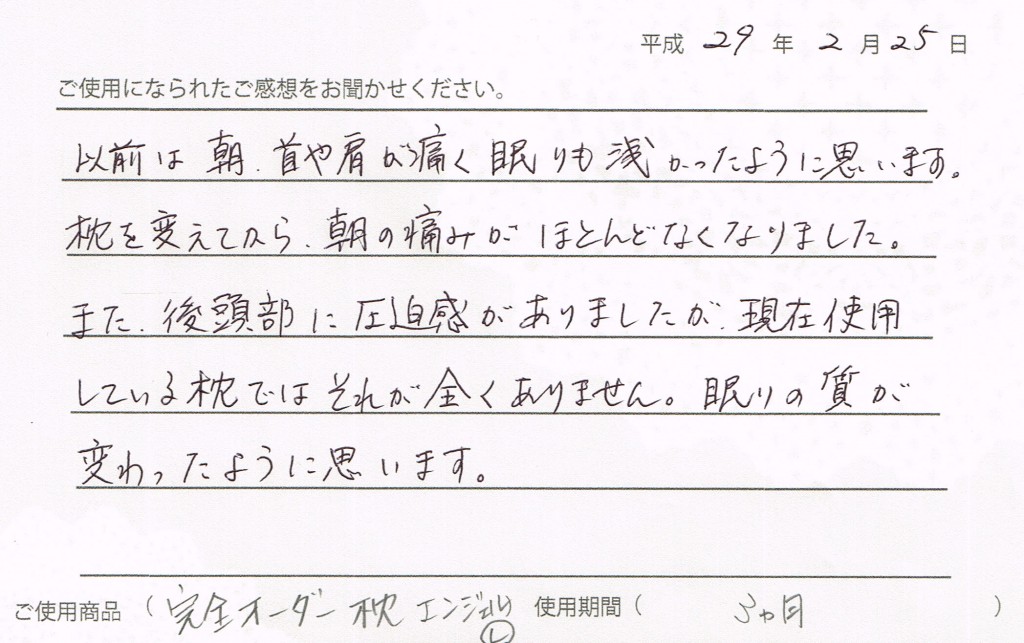 平成 29 年 2 月 25 日
ご使用になられたご感想をお聞かせください。
以前は朝、首や肩が痛く眠りも浅かったように思います。
枕を変えてから、朝の痛みがほとんどなくなりました。
また、後頭部に圧迫感がありましたが、現在使用
している枕ではそれが全くありません。眠りの質が
変わったように思います。
ご使用商品 ( 完全オーダー枕 エンジェル Ⓛ 使用期間 ( 3ヵ月 )